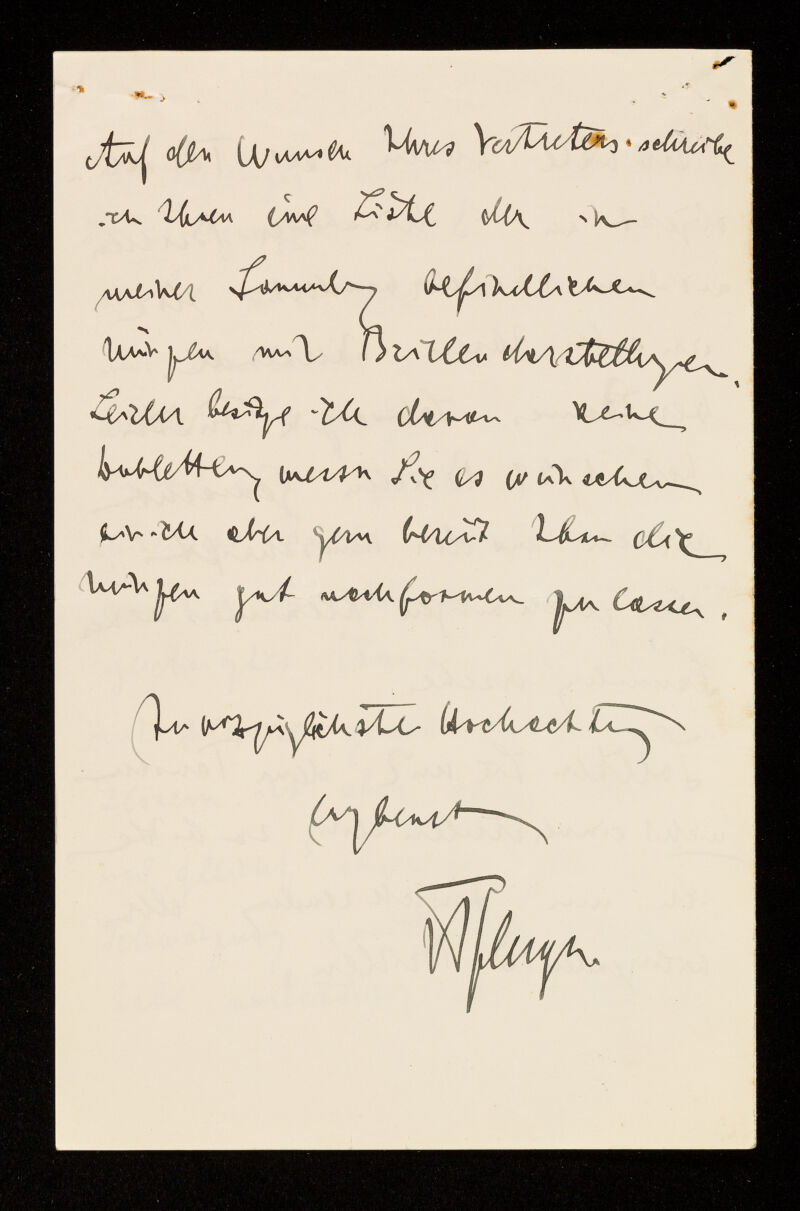 Auf den Wunsch Ihres Vertreters schreibe
ich Ihnen eine Liste der in
meiner Sammlung befindlichen
Münzen mit Brillendarstellungen.
Leider besitze ich davon keine
Dubletten, wenn Sie es wünschen
bin ich aber gern bereit Ihnen die
Münzen gut nachformen zu lassen.
In vorzüglichster Hochachtung
ergebenst